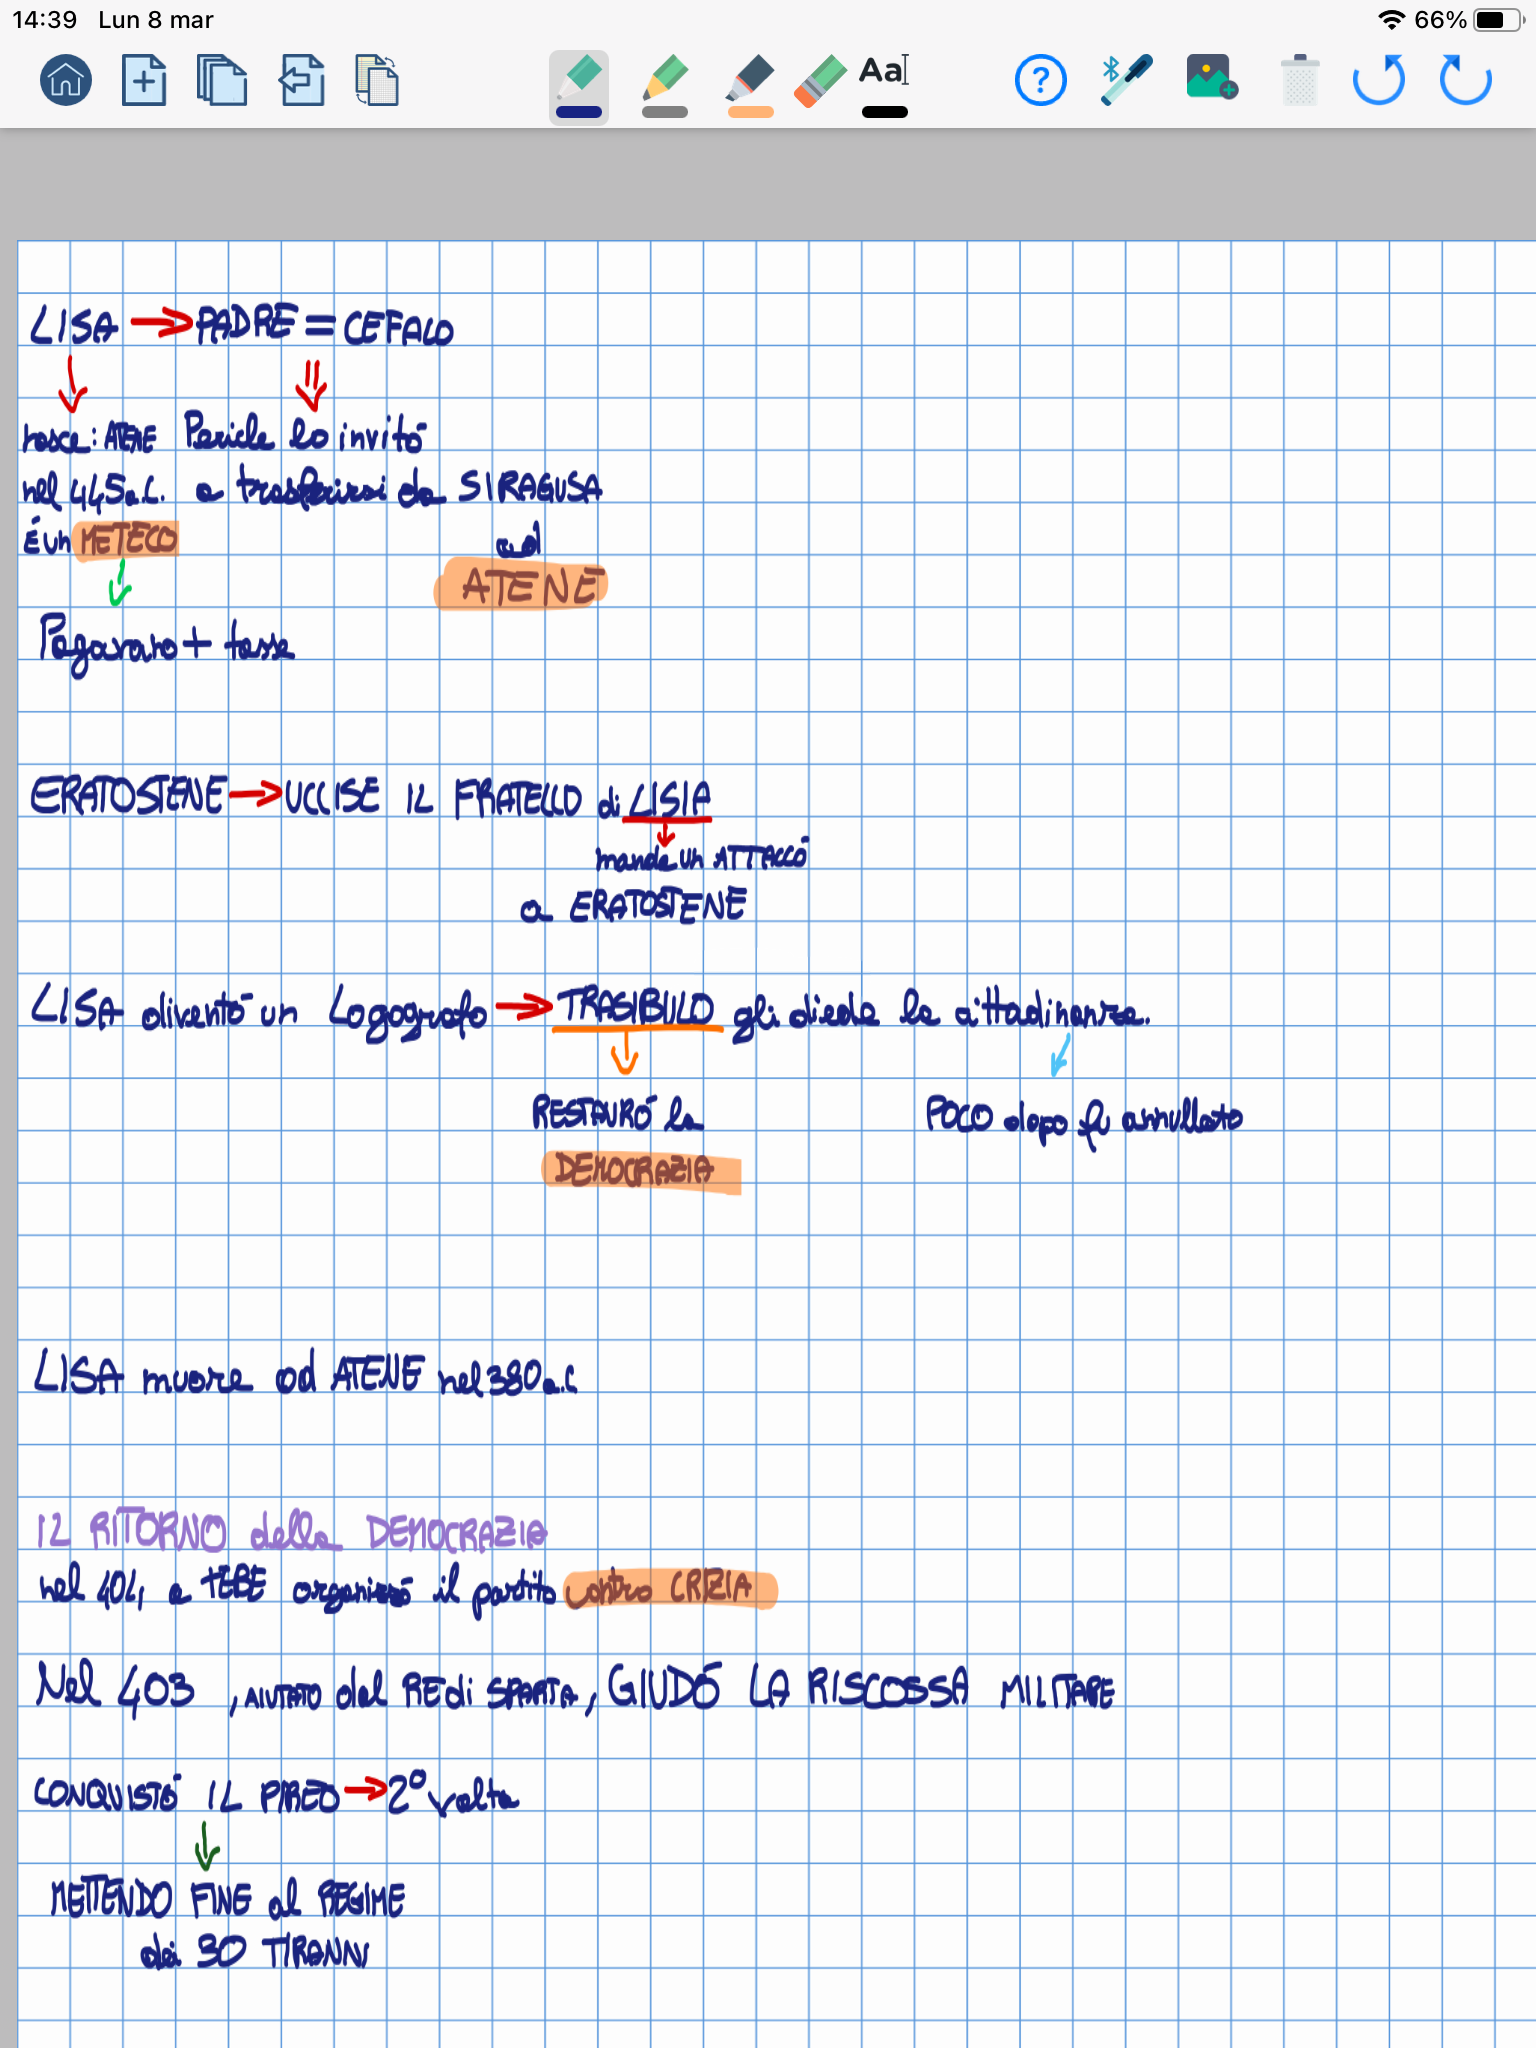 14:39 Lun 8 mar 66%
Aa
LISA → PADRE = CEFALO
nasce: ATENE Pericle lo invitò
nel 445 a.C. a trasferirsi da SIRAGUSA
É un METECO ad
ATENE
Pagavano + tasse
ERATOSTENE → UCCISE IL FRATELLO di LISIA
manda un ATTACCO
a ERATOSTENE
LISA diventò un Logografo → TRASIBULO gli diede la cittadinanza.
RESTAURÒ la POCO dopo fu annullato
DEMOCRAZIA
LISA muore ad ATENE nel 380 a.C
IL RITORNO della DEMOCRAZIA
nel 404, a TEBE organizzò il partito contro CRIZIA
Nel 403, AIUTATO dal RE di SPARTA, GIUDÒ LA RISCOSSA MILITARE
CONQUISTÒ IL PIREO → 2° volta
METTENDO FINE al REGIME
dei 30 TIRANNI